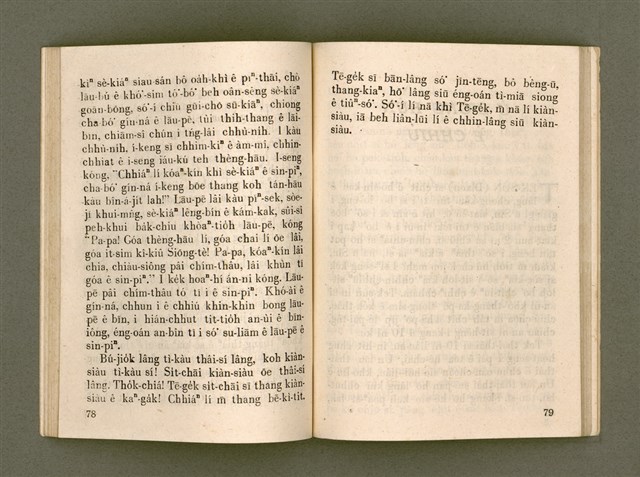 kìⁿ sè-kiáⁿ siau-sán bô oa̍h-khì ê pīⁿ-thāi, chò
lāu-bú ê khó͘-sim tô͘-bô͘ beh oân-sêng sè-kiáⁿ
goān-bōng, só͘-í chiu gúi-chō sū-kiāⁿ, chiong
cha-bó͘ gín-ná ê lāu-pē, tùi thih-thang ê lāi-
bīn, chiām-sî chún i tńg-lâi chhù-nih. I kàu
chhù-nih, í-keng sī chhim-kîⁿ ê àm-mî, chhin-
chhiat ê i-seng iáu-kú teh thèng-hāu. I-seng
kóng, "Chhiáⁿ lí kóaⁿ-kín khì sè-kiáⁿ ê sin-piⁿ,
cha-bó͘ gín-ná í-keng bōe thang koh tán-hāu
kàu bîn-á-ji̍t lah!" Lāu-pē lâi kàu pīⁿ-sek, sòe-
jī khui-mn̂g, sè-kiáⁿ lêng-bín ê kám-kak, sûi-sî
peh-khui ba̍k-chiu khòaⁿ-tio̍h lāu-pē, kóng
"Pa-pa! Góa thèng-hāu lí, góa chai lí ōe lâi,
góa it-sim kî-kiû Siōng-tè! Pa-pa, kóaⁿ-kín lâi
chia, chiàu-siông pâi chím-thâu, lâi khùn tī
góa ê sin-piⁿ." I ke̍k hoaⁿ-hí án-ni kóng. Lāu-
pē pâi chím-thâu tó tī i ê sin-piⁿ. Khó-ài ê
gín-ná, chhun i ê chhiú khin-khin bong lāu-
pē ê bīn, i hiān-chhut tit-tio̍h an-ùi ê bīn-
iông, éng-oán an-bîn tī i só͘ su-liām ê lāu-pē ê
sin-piⁿ.
Bû-jio̍k lâng ti-kàu thâi-sí lâng, koh kiàn-
siàu ti-kàu sí! Si̍t-chāi kiàn-siàu ōe thâi-sí
lâng. Tho̍k-chiá! Tē-ge̍k si̍t-chāi sī thang kiàn-
siàu ê kaⁿ-ga̍k! Chhiáⁿ lí m̄ thang bē-kì-tit.
78
Tē-ge̍k sī bān-lâng só͘ jīn-tēng, bô bêng-ū,
thang-kiaⁿ, hō͘ lâng siū éng-oán ti-miā siong
ê tiûⁿ-só͘. Só͘-í lí nā khì Tē-ge̍k, m̄ nā lí kiàn-
siàu, iā beh liân-lūi lí ê chhin-lâng siū kiàn-
siàu.
79